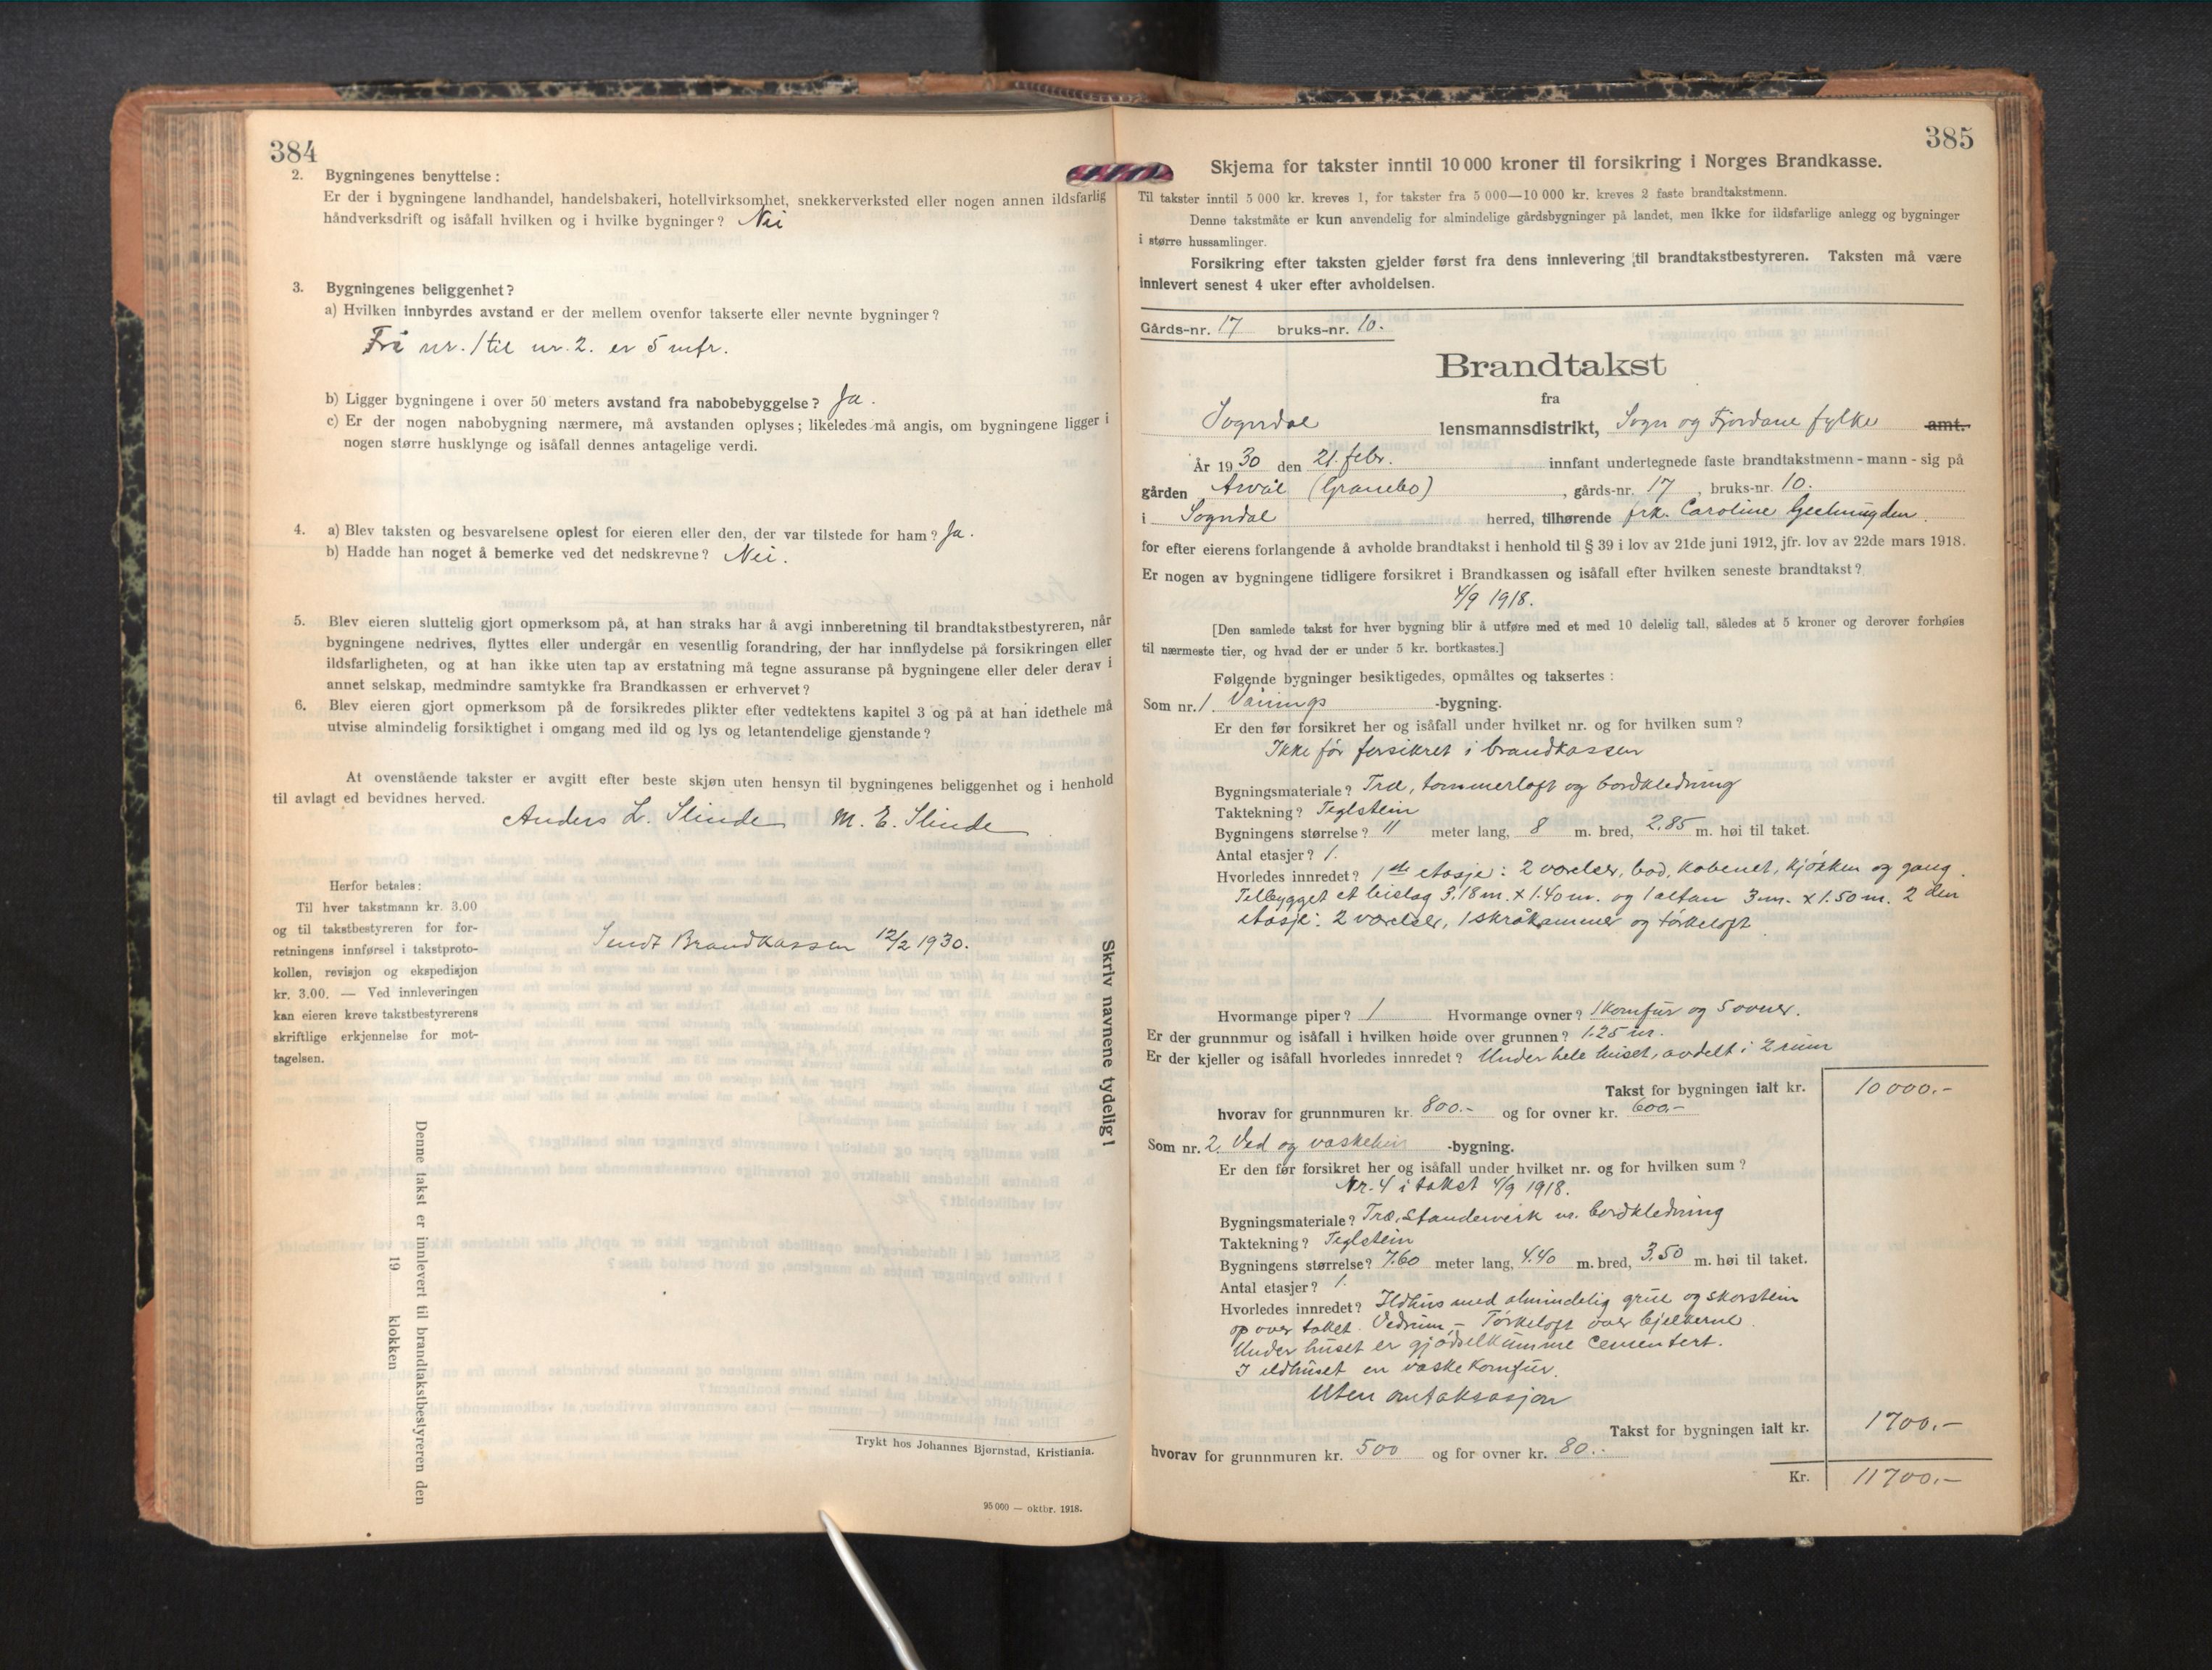 384
2. Bygningenes benyttelse :
Er der i bygningene landhandel, handelsbakeri, hotellvirksomhet, snekkerverksted eller nogen annen ildsfarlig
håndverksdrift og isåfall hvilken og i hvilke bygninger? Nei
3. Bygningenes beliggenhet?
a) Hvilken innbyrdes avstand er der mellem ovenfor takserte eller nevnte bygninger?
Frå nr. 1 til nr. 2. er 5 mtr.
b) Ligger bygningene i over 50 meters avstand fra nabobebyggelse? Ja.
c) Er der nogen nabobygning nærmere, må avstanden oplyses; likeledes må angis, om bygningene ligger i
nogen større husklynge og isåfall dennes antagelige verdi.
4. a) Blev taksten og besvarelsene oplest for eieren eller den, der var tilstede for ham? Ja.
b) Hadde han noget å bemerke ved det nedskrevne? Nei.
5. Blev eieren sluttelig gjort opmerksom på, at han straks har å avgi innberetning til brandtakstbestyreren, når
bygningene nedrives, flyttes eller undergår en vesentlig forandring, der har innflydelse på forsikringen eller
ildsfarligheten, og at han ikke uten tap av erstatning må tegne assuranse på bygningene eller deler derav i
annet selskap, medmindre samtykke fra Brandkassen er erhvervet?
6. Blev eieren gjort opmerksom på de forsikredes plikter efter vedtektens kapitel 3 og på at han idethele må
utvise almindelig forsiktighet i omgang med ild og lys og letantendelige gjenstande?
At ovenstående takster er avgitt efter beste skjøn uten hensyn til bygningenes beliggenhet og i henhold
til avlagt ed bevidnes herved.
Anders L. Slinde M. E. Slinde
Herfor betales:
Til hver takstmann kr. 3.00
og til takstbestyreren for for-
retningens innførsel i takstproto-
kollen, revisjon og ekspedisjon
kr. 3.00. — Ved innleveringen
kan eieren kreve takstbestyrerens
skriftlige erkjennelse for mot-
tagelsen.
Sendt Brandkassen 12/2 1930.
Skriv navnene tydelig!
Denne takst er innlevert til brandtakstbestyreren den
19 klokken
Trykt hos Johannes Bjørnstad, Kristiania.
95 000 — oktbr. 1918.
385
Skjema for takster inntil 10 000 kroner til forsikring i Norges Brandkasse.
Til takster inntil 5 000 kr. kreves 1, for takster fra 5 000—10 000 kr. kreves 2 faste brandtakstmenn.
Denne takstmåte er kun anvendelig for almindelige gårdsbygninger på landet, men ikke for ildsfarlige anlegg og bygninger
i større hussamlinger.
Forsikring efter taksten gjelder først fra dens innlevering til brandtakstbestyreren. Taksten må være
innlevert senest 4 uker efter avholdelsen.
Gårds-nr. 17 bruks-nr. 10.
Brandtakst
fra
Sogndal lensmannsdistrikt, Sogn og Fjordane fylke amt.
År 1930 den 21. febr. innfant undertegnede faste brandtakstmenn - mann - sig på
gården (Granebo), gårds-nr. 17, bruks-nr. 10.
i Sogndal herred, tilhørende frk. Caroline
for efter eierens forlangende å avholde brandtakst i henhold til § 39 i lov av 21de juni 1912, jfr. lov av 22de mars 1918.
Er nogen av bygningene tidligere forsikret i Brandkassen og isåfall efter hvilken seneste brandtakst?
4/9 1918.
[Den samlede takst for hver bygning blir å utføre med et med 10 delelig tall, således at 5 kroner og derover forhøies
til nærmeste tier, og hvad der er under 5 kr. bortkastes.]
Følgende bygninger besiktigedes, opmåltes og taksertes :
Som nr. 1. Vånings -bygning.
Er den før forsikret her og isåfall under hvilket nr. og for hvilken sum?
Ikke før forsikret i brandkassen
Bygningsmateriale? Træ, tømmerloft og bordkledning
Taktekning? Teglstein
Bygningens størrelse? 11 meter lang, 8 m. bred, 2,85 m. høi til taket.
Antal etasjer? 1.
Hvorledes innredet? 1ste etasje: 2 værelser, bad, kabenet, kjøkken og gang.
Tilbygget et bislag 3,18 m. x 1.40 m. og 1 altan 3 m. x 1.50 m. 2 den
etasje: 2 værelser, 1 skråkammer og tørkeloft
Hvormange piper? 1 Hvormange ovner? 1 komfur og 5 ovner.
Er der grunnmur og isåfall i hvilken høide over grunnen? 1.25 m.
Er der kjeller og isåfall hvorledes innredet? Under hele huset, avdelt i 2 rum
Takst for bygningen ialt kr. 10 000.-
hvorav for grunnmuren kr. 800.- og for ovner kr. 600.-
Som nr. 2. Ved og vaskehus -bygning.
Er den før forsikret her og isåfall under hvilket nr. og for hvilken sum?
Nr. 4 i takst 4/9 1918.
Bygningsmateriale? Træ, standeverk m. bordkledning
Taktekning? Teglstein
Bygningens størrelse? 7.60 meter lang, 4.40 m. bred, 3,50 m. høi til taket.
Antal etasjer? 1.
Hvorledes innredet? Ildhus med almindelig grue og skorstein
op over taket. Vedrum, - Tørkeloft over bjelkerne.
Under huset er gjødselkumme cementert.
I ildhuset en vaskekomfur.
Uten omtaksasjon
Takst for bygningen ialt kr. 1700.-
hvorav for grunnmuren kr. 500 og for ovner kr. 80.-
Kr. 11700.-